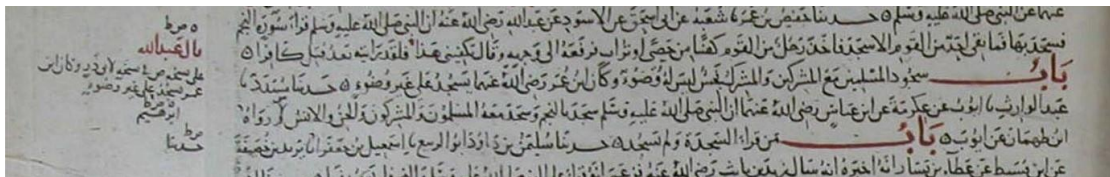 عنهما عن النبي صلى الله عليه وسلم ٥ حدثنا حفص بن عمر نا شعبة عن ابي اسحق عن الاسود عن عبد الله رضي الله عنه ان النبي صلى الله عليه وسلم قرا سورة النجم
فسجد بها فما بقي احد من القوم الا سجد فاخذ رجل من القوم كفا من حصى او تراب فرفعه الى وجهه وقال يكفيني هذا فلقد رايته بعد قتل كافرا ٥
باب سجود المسلمين مع المشركين والمشرك نجس ليس له وضوء وكان ابن عمر رضي الله عنهما يسجد على غير وضوء ٥ حدثنا مسدد نا
عبد الوارث نا ايوب عن عكرمة عن ابن عباس رضي الله عنهما ان النبي صلى الله عليه وسلم سجد بالنجم وسجد معه المسلمون والمشركون والجن والانس رواه
ابن طهمان عن ايوب ٥ باب من قرا السجدة ولم يسجد ٥ حدثنا سليمن بن داود ابو الربيع نا اسمعيل بن جعفر انا يزيد بن خصيفة
عن ابن قسيط عن عطاء بن يسار انه اخبره انه سال زيد بن ثابت رضي الله عنه
٥ ص ط
قال عبد الله
على غير وضوء
٥ ص ط
ابرهيم
ص ط
حدثنا